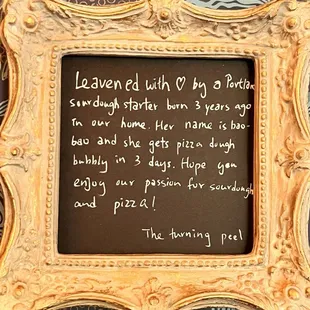 Leavened with ♡ by a Portlan
sourdough starter born 3 years ago
in our home. Her name is bao-
bao and she gets pizza dough
bubbly in 3 days. Hope you
enjoy our passion for sourdough
and pizza!
The turning peel